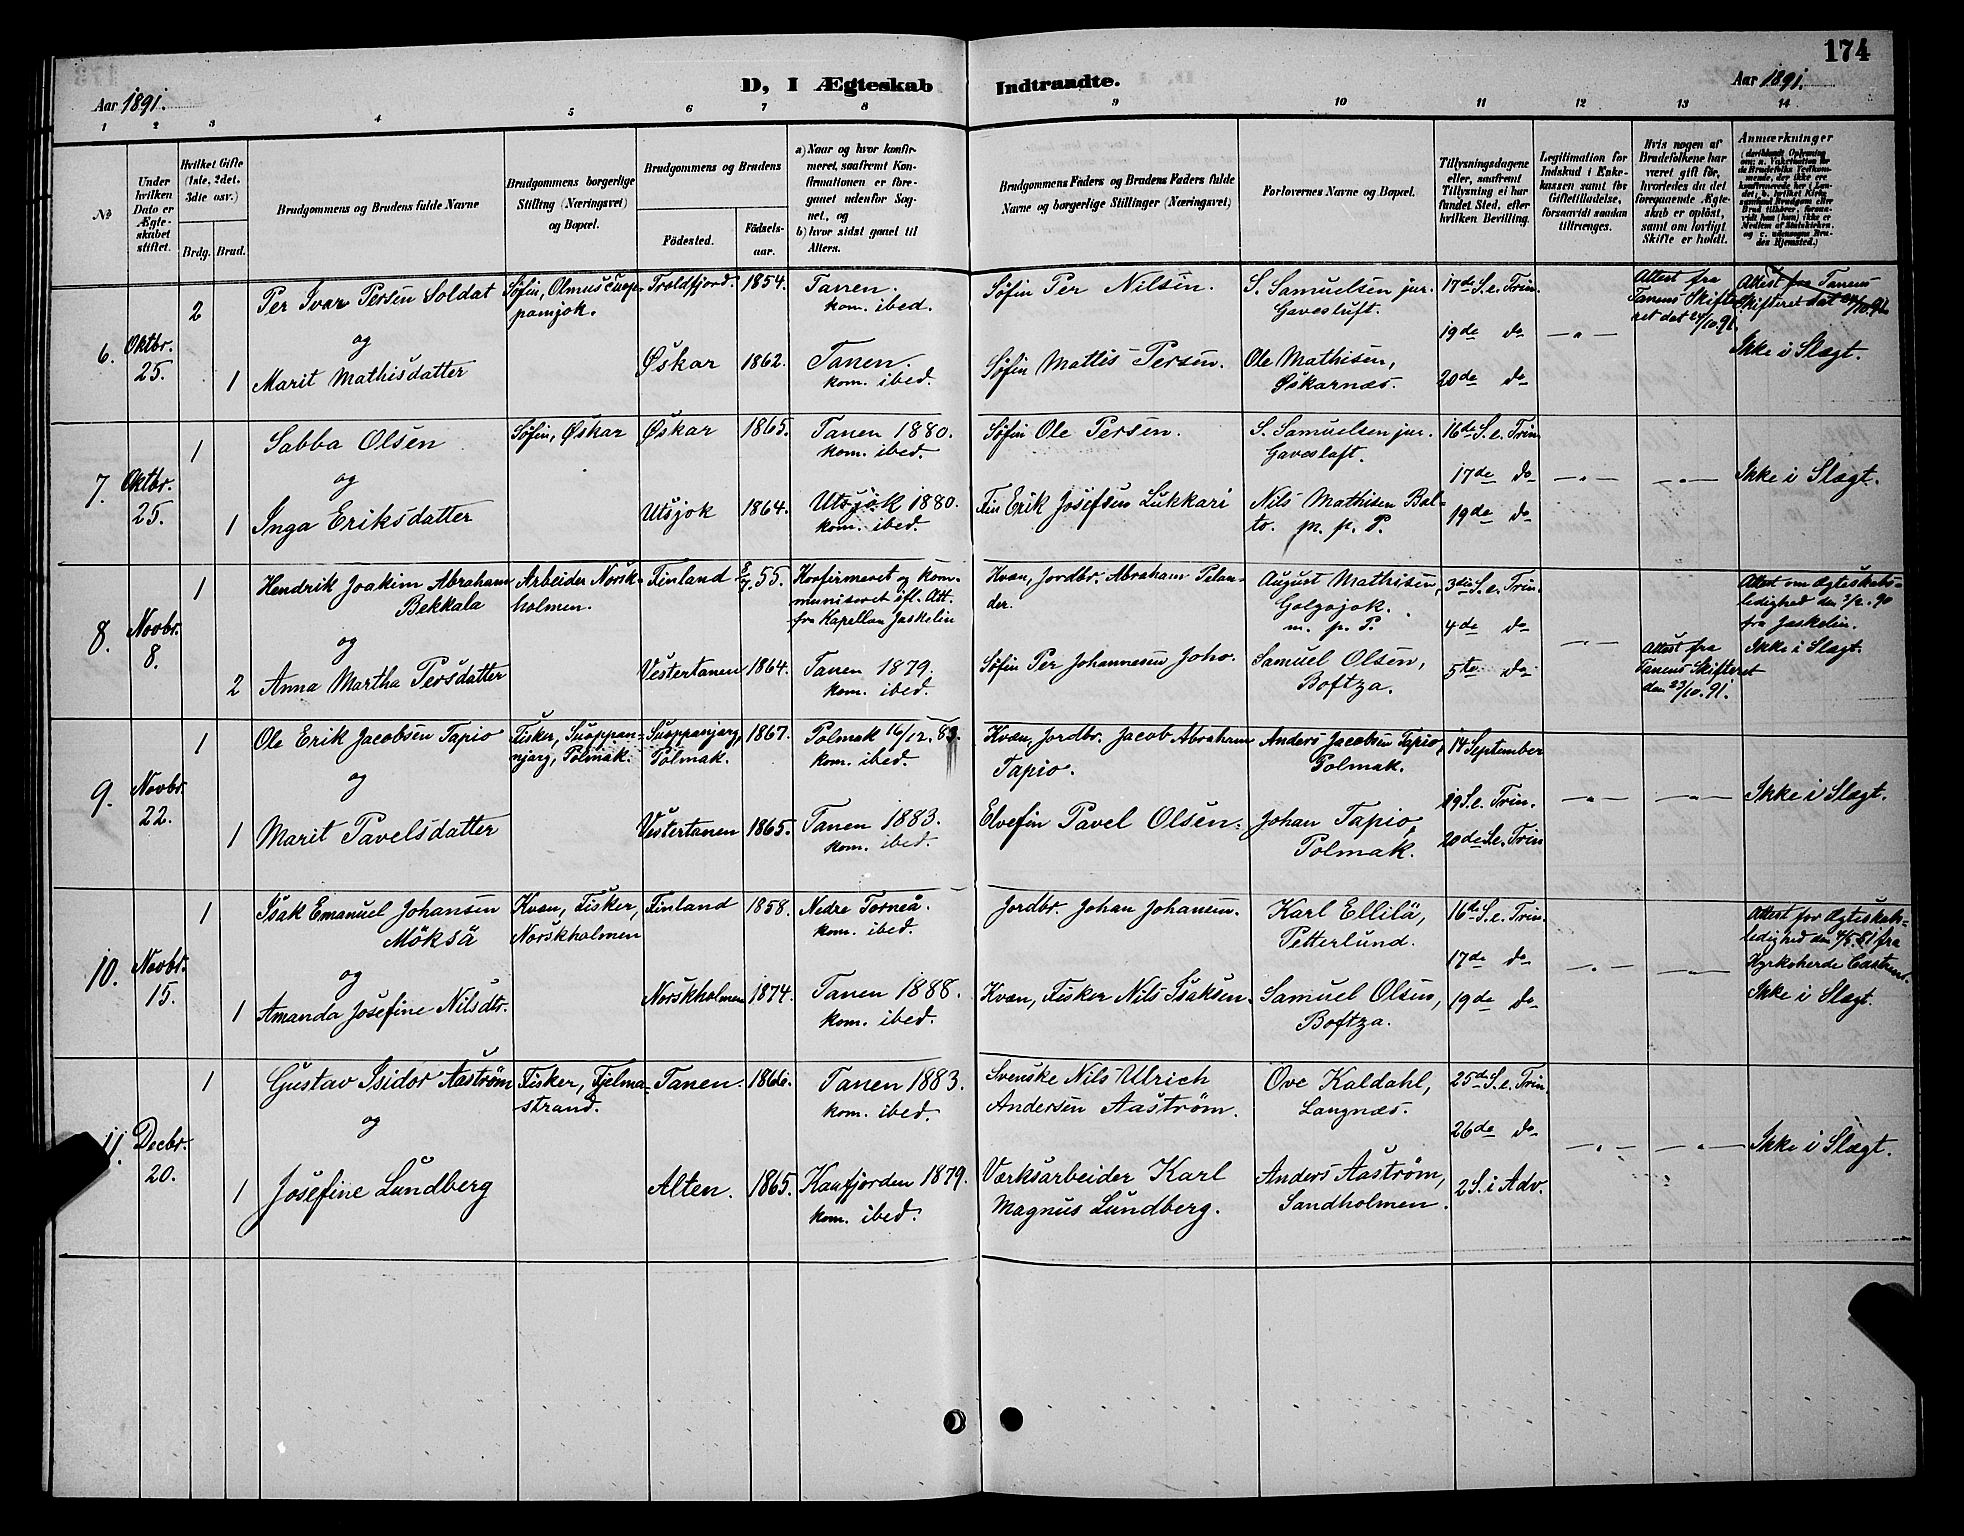 174
D, I Ægteskab Indtraadte.
Aar 1891. Aar 1891.
1 2 3 4 5 6 7 8 9 10 11 12 13 14
№
Under
hvilken
Dato er
Ægte-
skabet
stiftet.
Hvilket Gifte
(1ste, 2det.
3dte osv.)
Brdg. Brud.
Brudgommens og Brudens fulde Navne
Brudgommens borgerlige
Stilling (Næringsvei)
og Bopæl.
Brudgommens og Brudens
Födested.
Födsels-
aar.
a) Naar og hvor konfir-
meret, saafremt Kon-
firmationen er fore-
gaaet udenfor Sog-
net, og
b) hvor sidst gaaet til
Alters.
Brudgommens Faders og Brudens Faders fulde
Navne og borgerlige Stillinger (Næringsvei)
Forlovernes Navne og Bopæl.
Tillysningsdagene
eller, saafremt
Tillysning ei har
fundet Sted, efter
hvilken Bevilling.
Legitimation for
Indskud i Enke-
kassen samt for
Giftetilladelse,
forsaavidt saadan
tiltrænges.
Hvis nogen af
Brudefolkene har
været gift før,
hvorledes da det
foregaaende Ægte-
skab er opløst,
samt om lovligt
Skifte er holdt.
Anmærkninger
6.
Oktbr.
25.
2
1
Per Ivar Persen Soldat
og
Marit Mathisdatter
Søfin, Olmus
pamjok.
Troldfjord. 1854.
Øskar 1862.
Tanen.
kom. ibed.
Tanen.
kom. ibed.
Søfin Per Nilsen.
Søfin Mattis Persen.
S. Samuelsen jur.
Gavesluft.
Ole Mathisen,
Øskarnæs.
17de S. e. Trin.
19de do
20de do
— „ —
Attest fra
Tanens Skifte-
ret dat 24/10.91.
Attest fra Tanens
Skifteret dat 24/10.91.
Ikke i Slægt.
7.
Oktbr.
25.
1
1
Sabba Olsen
og
Inga Eriksdatter
Søfin, Øskar
Øskar 1865.
Utsjok 1864.
Tanen 1880.
kom. ibed.
Utsjok 1880.
kom. ibed.
Søfin Ole Persen.
Fin Erik Josefsen Lukkari
S. Samuelsen jur.
Gavesluft.
Nils Mathisen Bal-
to. m. p. P.
16de S. e. Trin.
17de do
19de do
— „ —
— „ —
Ikke i Slægt.
8.
Novbr.
8.
1
2
Hendrik Joakim Abraham
Bekkala
og
Anna Martha Persdatter
Arbeider Norsk-
holmen.
Finland 8/7.55.
Vestertanen 1864.
Konfirmeret og kom-
muniseret ifl. Att.
fra Kapellan Jaskelin
Tanen 1879.
kom. ibed.
Kvæn, Jordbr. Abraham Pelan-
der.
Søfin Per Johannesen Joho.
August Mathisen,
Golgojok.
m. p. P.
Samuel Olsen,
Boftza.
3die S. e. Trin.
4de do
5te do
— „ —
Attest fra
Tanens Skifteret
den 23/10.91.
Attest om Ægteskabs-
ledighed den 3/2.90
fra Jaskelin.
Ikke i Slægt.
9.
Novbr.
22.
1
1
Ole Erik Jacobsen Tapio
og
Marit Pavelsdatter
Fisker, Suoppan-
njarg, Polmak.
Suoppanjarg,
Polmak.
1867.
Vestertanen 1865.
Polmak 16/12.83.
kom. ibed.
Tanen 1883.
kom. ibed.
Kvæn, Jordbr. Jacob Abraham
Tapio.
Elvefin Pavel Olsen.
Anders Jacobsen Tapio,
Polmak.
Johan Tapio,
Polmak.
14 September
19 S. e. Trin.
20de S. e. Trin
— „ —
— „ —
Ikke i Slægt.
10.
Novbr.
15.
1
1
Isak Emanuel Johansen
Möksä
og
Amanda Josefine Nilsdtr.
Kvæn, Fisker,
Norskholmen
Finland 1858.
Norskholmen 1874.
Nedre Torneå.
kom. ibed.
Tanen 1888.
kom. ibed.
Jordbr. Johan Johansen.
Kvæn, Fisker Nils Isaksen.
Karl Ellilä,
Petterlund.
Samuel Olsen,
Boftza.
16de S. e. Trin.
17de do
19de do
— „ —
— „ —
Attest for Ægteskabs-
ledighed den 4/5.81 fra
Kyrkoherde Castren.
Ikke i Slægt.
11.
Decbr.
20.
1
1
Gustav Isidor Aaström
og
Josefine Lundberg
Fisker, Fjelma-
strand.
Tanen. 1866.
Alten. 1865.
Tanen 1883.
kom. ibed.
Kaafjorden 1879.
kom. ibed.
Svenske Nils Ulrich
Andersen Aaström.
Værksarbeider Karl
Magnus Lundberg.
Ove Kaldahl,
Langnæs.
Anders Aaström,
Sandholmen.
25de S. e. Trin.
26de do
2 S. i Adv.
— „ —
— „ —
Ikke i Slægt.